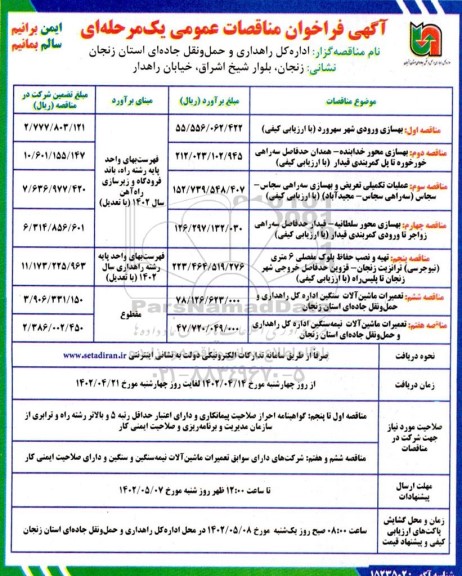 آگهی فراخوان مناقصات عمومی یک‌مرحله‌ای
ایمن برانیم
سالم بمانیم
نام مناقصه‌گزار: اداره‌کل راهداری و حمل‌ونقل جاده‌ای استان زنجان
نشانی: زنجان، بلوار شیخ اشراق، خیابان راهدار
موضوع مناقصات
مبلغ برآورد (ریال)
مبنای برآورد
مبلغ تضمین شرکت در مناقصه (ریال)
مناقصه اول: بهسازی ورودی شهر سهرورد (با ارزیابی کیفی)
۵۵/۵۵۶/۰۶۲/۴۲۲
۲/۷۷۷/۸۰۳/۱۲۱
مناقصه دوم: بهسازی محور خدابنده- همدان حدفاصل سه‌راهی
خورخوره تا پل کمربندی قیدار (با ارزیابی کیفی)
۲۱۲/۰۲۳/۱۰۲/۹۴۵
۱۰/۶۰۱/۱۵۵/۱۴۷
مناقصه سوم: عملیات تکمیلی تعریض و بهسازی سه‌راهی سجاس-
سجاس (سه‌راهی سجاس- مجیدآباد) (با ارزیابی کیفی)
۱۵۲/۷۳۹/۵۴۸/۴۰۷
۷/۶۳۶/۹۷۷/۴۲۰
مناقصه چهارم: بهسازی محور سلطانیه- قیدار حدفاصل سه‌راهی
زواجر تا ورودی کمربندی قیدار (با ارزیابی کیفی)
۱۲۶/۲۹۷/۱۳۲/۰۳۰
۶/۳۱۴/۸۵۶/۶۰۱
فهرست‌بهای واحد
پایه رشته راه، باند
فرودگاه و زیرسازی
راه‌آهن
سال ۱۴۰۲ (با تعدیل)
مناقصه پنجم: تهیه و نصب حفاظ بلوک مفصلی ۶ متری
(نیوجرسی) ترانزیت زنجان- قزوین حدفاصل خروجی شهر
زنجان تا پلیس‌راه (با ارزیابی کیفی)
۲۲۳/۴۶۴/۵۱۹/۲۷۶
فهرست‌بهای واحد پایه
رشته راهداری سال
۱۴۰۲ (با تعدیل)
۱۱/۱۷۳/۲۲۵/۹۶۳
مناقصه ششم: تعمیرات ماشین‌آلات سنگین اداره کل راهداری و
حمل‌ونقل جاده‌ای استان زنجان
۷۸/۱۲۶/۶۲۳/۰۰۰
۳/۹۰۶/۳۳۱/۱۵۰
مناقصه هفتم: تعمیرات ماشین‌آلات نیمه‌سنگین اداره کل راهداری
و حمل‌ونقل جاده‌ای استان زنجان
۴۷/۷۲۰/۰۴۹/۰۰۰
مقطوع
۲/۳۸۶/۰۰۲/۴۵۰
نحوه دریافت
صرفاً از طریق سامانه تدارکات الکترونیکی دولت به نشانی اینترنتی www.setadiran.ir
زمان دریافت
از روز چهارشنبه مورخ ۱۴۰۲/۰۴/۱۴ لغایت روز چهارشنبه مورخ ۱۴۰۲/۰۴/۲۱
صلاحیت مورد نیاز
جهت شرکت در
مناقصات
مناقصه اول تا پنجم: گواهینامه احراز صلاحیت پیمانکاری و دارای اعتبار حداقل رتبه ۵ و بالاتر رشته راه و ترابری از
سازمان مدیریت و برنامه‌ریزی و صلاحیت ایمنی کار
مناقصه ششم و هفتم: شرکت‌های دارای سوابق تعمیرات ماشین‌آلات نیمه‌سنگین و سنگین و دارای صلاحیت ایمنی کار
مهلت ارسال
پیشنهادات
تا ساعت ۱۲:۰۰ ظهر روز شنبه مورخ ۱۴۰۲/۰۵/۰۷
زمان و محل گشایش
پاکت‌های ارزیابی
کیفی و پیشنهاد قیمت
ساعت ۰۸:۰۰ صبح روز یک‌شنبه مورخ ۱۴۰۲/۰۵/۰۸ در محل اداره‌کل راهداری و حمل‌ونقل جاده‌ای استان زنجان
شناسه آگهی ۱۵۲۳۵۰۲۰
ParsNamadData
۰۲۱-۸۸۳۴۹۶۷۰-۵